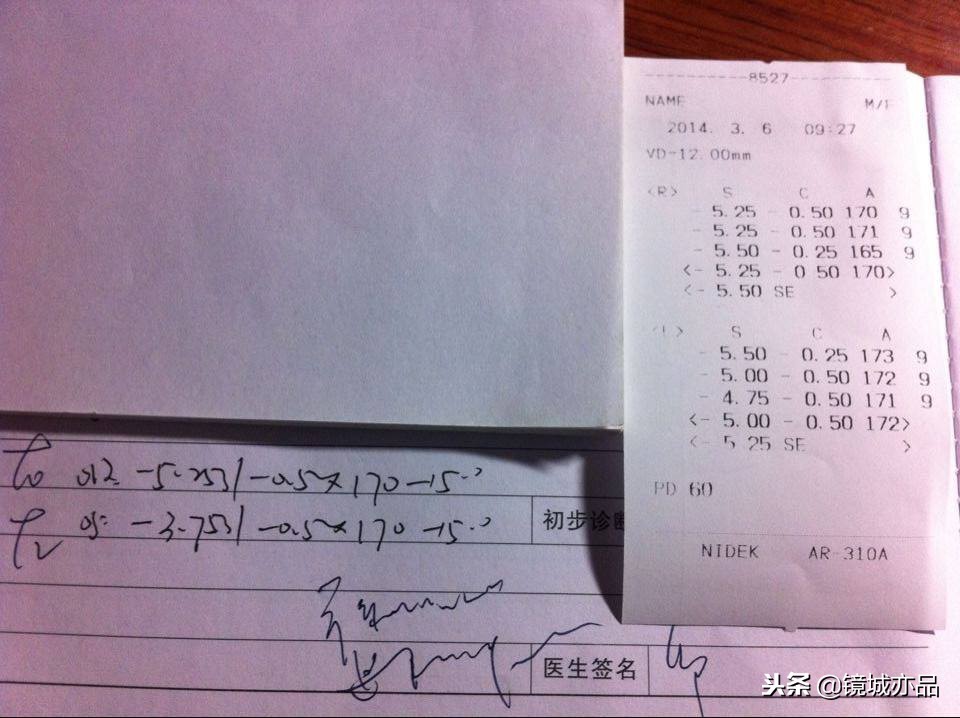 8527
NAME M/F
2014. 3. 6 09:27
VD-12.00mm
<R> S C A
- 5.25 - 0.50 170 9
- 5.25 - 0.50 171 9
- 5.50 - 0.25 165 9
<- 5.25 - 0.50 170>
<- 5.50 SE >
<L> S C A
- 5.50 - 0.25 173 9
- 5.00 - 0.50 172 9
- 4.75 - 0.50 171 9
<- 5.00 - 0.50 172>
<- 5.25 SE >
PD 60
NIDEK AR-310A
-5.25S/-0.5×170
-3.75S/-0.5×170
初步诊断
医生签名
头条 @镜城亦品